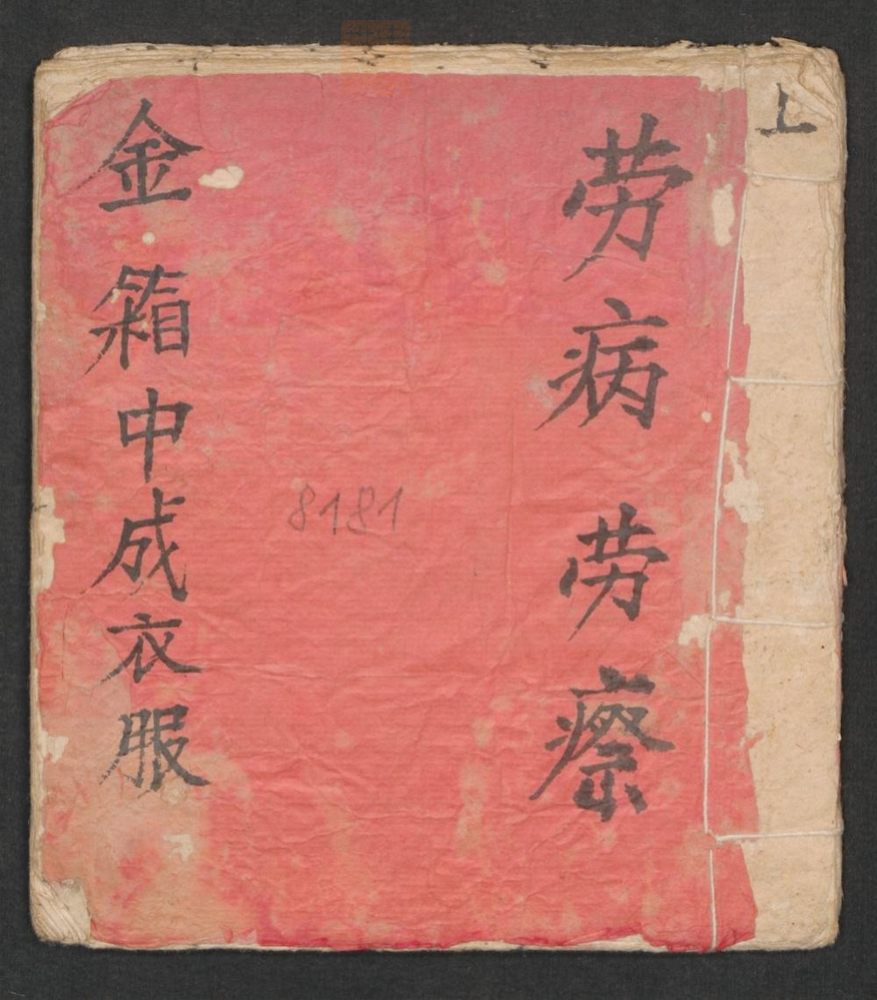 上
劳病劳瘵
8181
金箱中成衣服